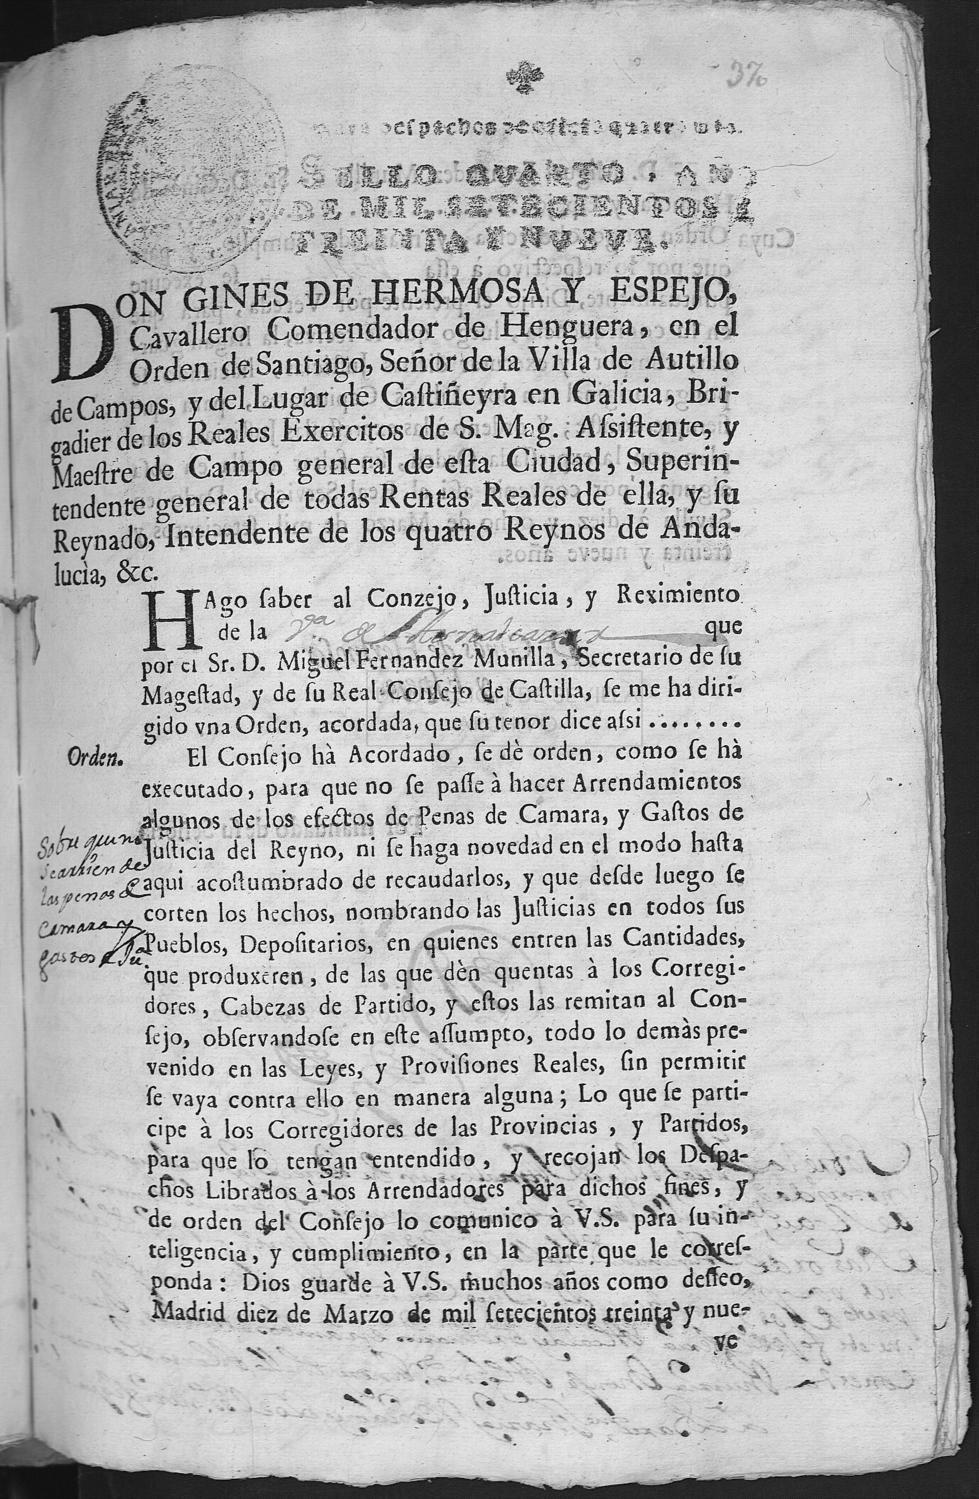 37
Para despachos de oficio quatro mrs.
SELLO QUARTO, AÑO
DE MIL SETECIENTOS Y
TREINTA Y NUEVE.
DON GINES DE HERMOSA Y ESPEJO,
Cavallero Comendador de Henguera, en el
Orden de Santiago, Señor de la Villa de Autillo
de Campos, y del Lugar de Castiñeyra en Galicia, Bri-
gadier de los Reales Exercitos de S. Mag. Aſsiſtente, y
Maeſtre de Campo general de eſta Ciudad, Superin-
tendente general de todas Rentas Reales de ella, y ſu
Reynado, Intendente de los quatro Reynos de Anda-
lucìa, &c.
HAgo ſaber al Conzejo, Juſticia, y Reximiento
de la Vª de que
por el Sr. D. Miguel Fernandez Munilla, Secretario de ſu
Mageſtad, y de ſu Real Conſejo de Caſtilla, ſe me ha diri-
gido vna Orden, acordada, que ſu tenor dice aſsi ........
Orden. El Conſejo hà Acordado, ſe dè orden, como ſe hà
executado, para que no ſe paſſe à hacer Arrendamientos
algunos de los efectos de Penas de Camara, y Gaſtos de
Juſticia del Reyno, ni ſe haga novedad en el modo haſta
aqui acoſtumbrado de recaudarlos, y que deſde luego ſe
corten los hechos, nombrando las Juſticias en todos ſus
Pueblos, Depoſitarios, en quienes entren las Cantidades,
que produxeren, de las que dèn quentas à los Corregi-
dores, Cabezas de Partido, y eſtos las remitan al Con-
ſejo, obſervandoſe en eſte aſſumpto, todo lo demàs pre-
venido en las Leyes, y Proviſiones Reales, ſin permitir
ſe vaya contra ello en manera alguna; Lo que ſe parti-
cipe à los Corregidores de las Provincias, y Partidos,
para que lo tengan entendido, y recojan los Deſpa-
chos Librados à los Arrendadores para dichos fines, y
de orden del Conſejo lo comunico à V.S. para ſu in-
teligencia, y cumplimiento, en la parte que le correſ-
ponda: Dios guarde à V.S. muchos años como deſſeo,
Madrid diez de Marzo de mil ſetecientos treinta y nue-
ve
Sobre que no
se arrienden
las penas de
camara y
gastos de Juª.